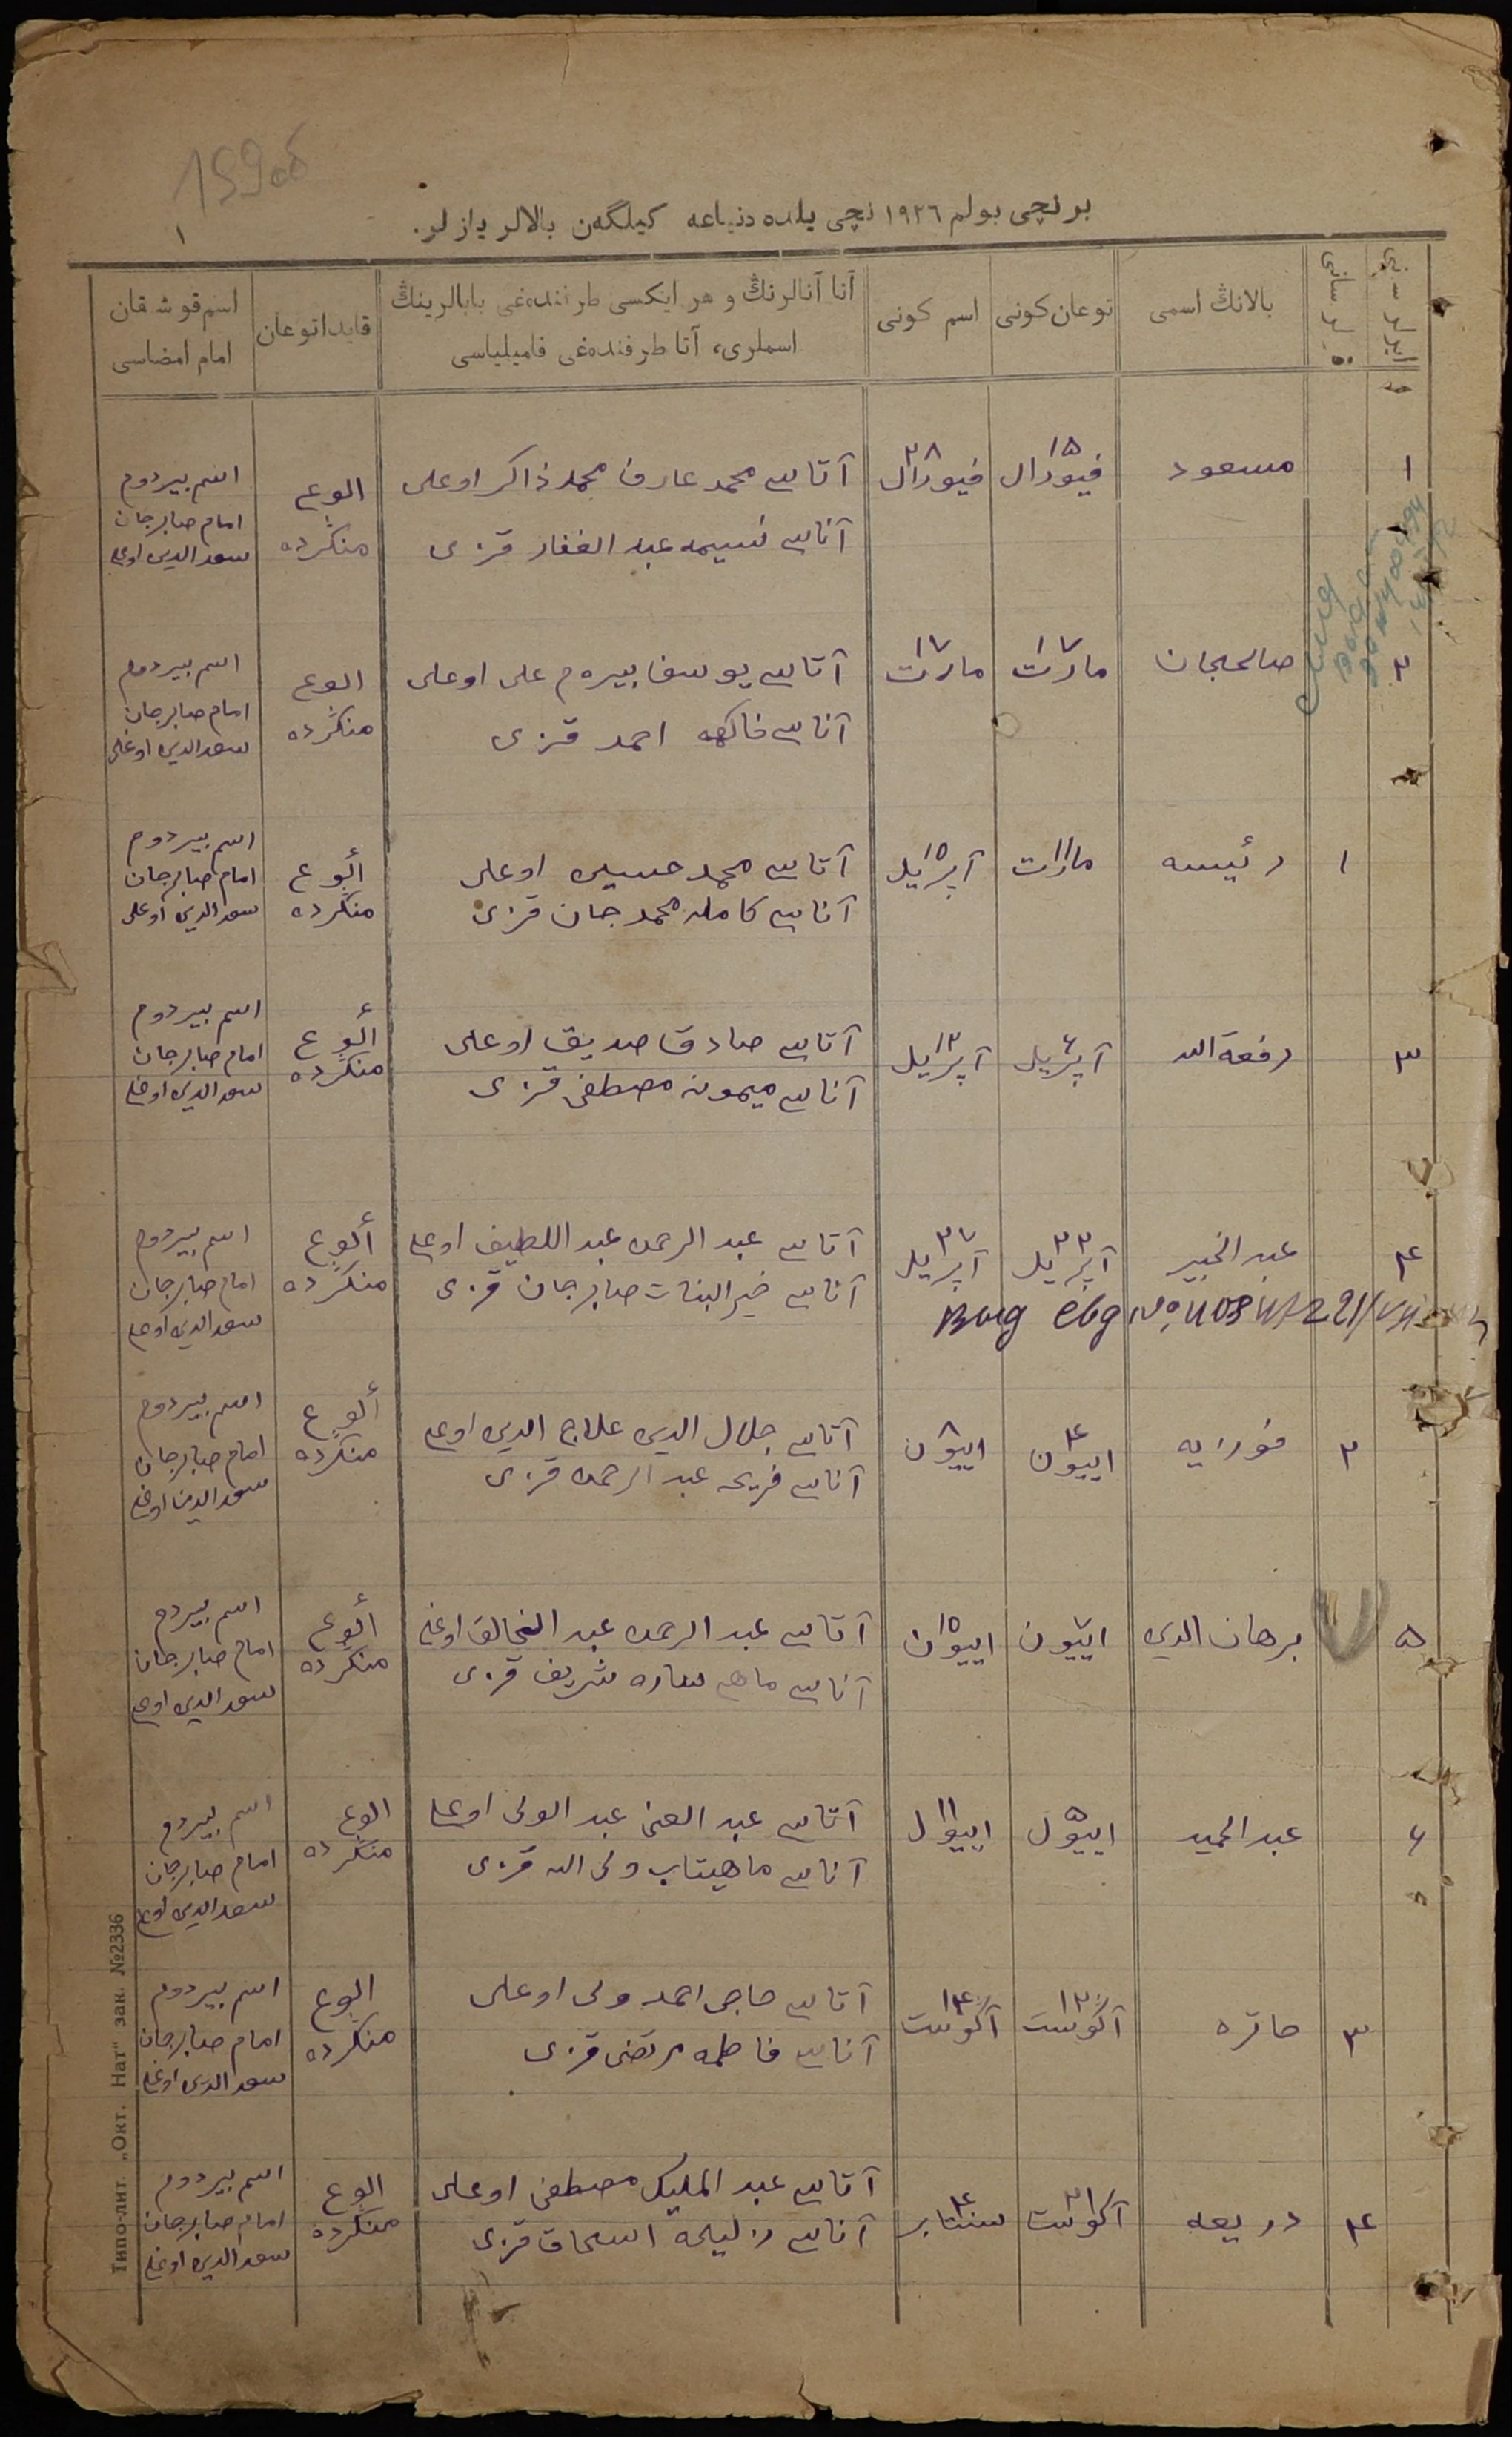 159об
۱
برنچی بولم ۱۹۲٦ نچی یلده دنیاعه کیلگەن بالالر یازلر.
بالانڭ اسمی
توعان کونی
اسم کونی
آتا آنالرنڭ و هر ایکسی طرفندەغی بابالرینڭ
اسملری، آتا طرفندەغی فامیلیاسی
قایدا توعان
اسم قوشقان
امام امضاسی
۱
مسعود
۱۵ فیورال
۲۸ فیورال
آتاسی محمد عارف محمد ذاکر اوعلی
آناسی نسیمه عبد الغفار قزی
الوع
منگرده
اسم بیردوم
امام صابرجان
سعد الدین اوعلی
۲
صالحجان
۱۷ مارت
۱۷ مارت
آتاسی یوسف بیرم علی اوعلی
آناسی فاکهه احمد قزی
الوع
منگرده
اسم بیردوم
امام صابرجان
سعد الدین اوغلی
۱
رئیسه
۱۱ مارت
۱۵ آپریل
آتاسی محمد حسین اوعلی
آناسی کامله محمد جان قزی
ألوع
منگرده
اسم بیردوم
امام صابرجان
سعد الدین اوعلی
۳
رفعة الله
۶ آپریل
۱۳ آپریل
آتاسی صادق صدیق اوعلی
آناسی میمونه مصطفی قزی
ألوع
منگرده
اسم بیردوم
امام صابرجان
سعد الدین اوعلی
۴
عبد الخبیر
۲۳ آپریل
۲۷ آپریل
آتاسی عبد الرحمن عبد اللطیف اوعلی
آناسی خیر البنات صابرجان قزی
ألوع
منگرده
اسم بیردوم
امام صابرجان
سعد الدین اوعلی
۲
فوزایه
۴ اییون
۸ اییون
آتاسی جلال الدین علاج الدین اوعلی
آناسی فریحه عبد الرحمن قزی
ألوع
منگرده
اسم بیردوم
امام صابرجان
سعد الدین اوغلی
۵
برهان الدین
۷ اییون
۱۵ اییون
آتاسی عبد الرحمن عبد الخالق اوغلی
آناسی ماهی ساره شریف قزی
ألوع
منگرده
اسم بیردم
امام صابرجان
سعد الدین اوعلی
۶
عبد الحمید
۵ اییول
۱۱ اییول
آتاسی عبد الغنی عبد الولی اوعلی
آناسی ماهیتاب ولی الله قزی
الوع
منگرده
اسم بیردم
امام صابرجان
سعد الدین اوعلی
۳
حائزه
۱۲ آگوست
۱۴ آگوست
آتاسی حاجی احمد ولی اوعلی
آناسی فاطمه مرتضی قزی
الوع
منگرده
اسم بیردوم
امام صابرجان
سعد الدین اوغلی
۴
دریعه
۳۱ آگوست
۴ سنتابر
آتاسی عبد الملیک مصطفی اوعلی
آناسی زلیحه اسحاق قزی
الوع
منگرده
اسم بیردوم
امام صابرجان
سعد الدین اوغلی
Типо-лит. „Окт. Нат“ зак. №2336